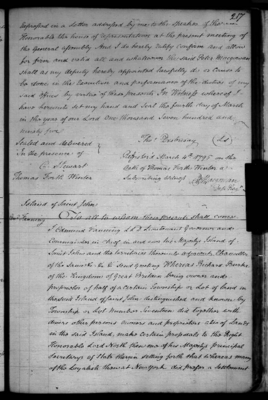 217
expressed in a letter addressed by me to the Speaker of the
Honorable the house of representatives at the present meeting of
the General Assembly And I do hereby ratify Confirm and allow
for firm and valid all and whatsoever the said
shall as my deputy hereby appointed lawfully do or Cause to
be done in the Execution and performance of the duties of my
said Office by virtue of these presents In Witness whereof I
have hereunto set my hand and Seal the fourth day of March
in the year of our Lord one thousand Seven hundred and
ninety five
Sealed and delivered
in the presence of
Stewart
Thomas Wentworth
Thos Desbrisay (LS)
Registered March 1795 on the
Oath of Thomas Wentworth
Subscribing witness
Island of Saint John
To all to whom these presents shall come
I Edmund Fanning LLD Lieutenant Governor and
Commander in Chief in and over his Majestys Island of
Saint John and the territories thereunto adjacent Chancellor
of the Kingdom of Great Britain being owner and
proprietor of half of a Certain Township or Lot of land in
the said Island of Saint John distinguished and known by
Township or Lot number Seventeen did together with
divers other persons owners and proprietors also of lands
in the said Island make certain proposals to the Right
Honorable Lord North then one of his Majestys principal
Secretarys of State therein setting forth that whereas many
of the Loyalists then at New York did prefer a Settlement